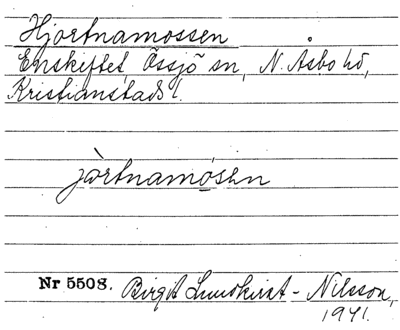 Hjortnamossen
Enskiftet, Össjö sn, N. Åsbo hd,
Kristianstads l.
jòrtnamósen
Nr 5508. Birgit Lundkvist-Nilsson,
1941.